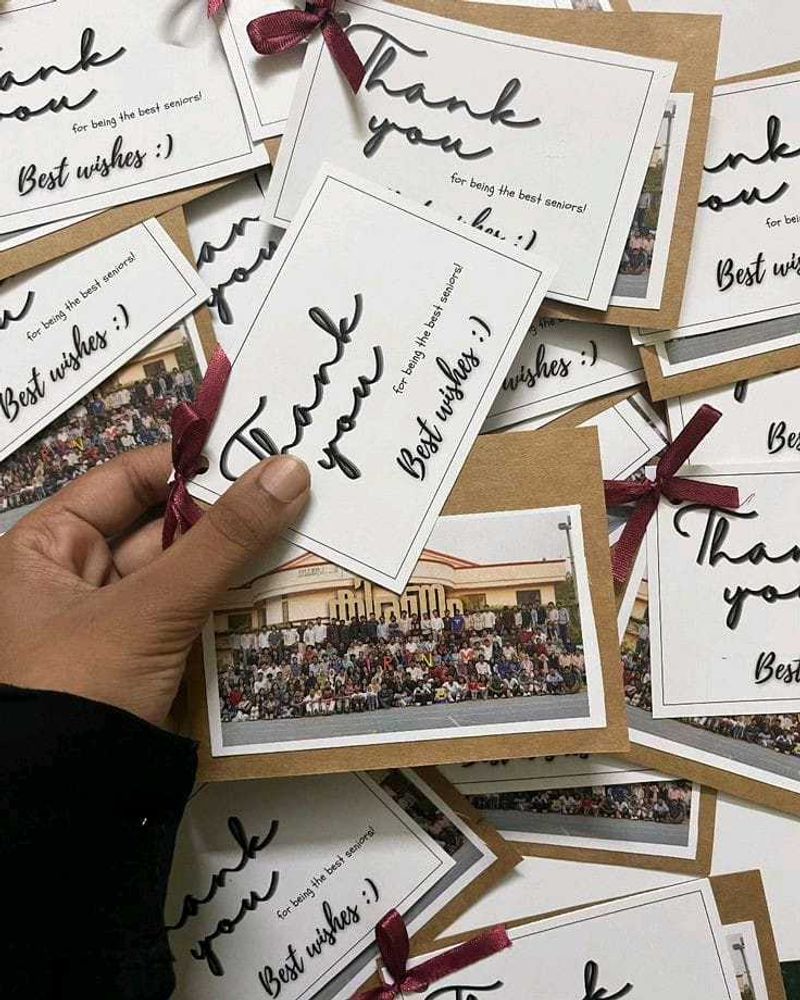 ank
ou
for being the best seniors!
Best wishes :)
Thank
you
for being the best seniors!
ank
you
for being
Best wis
for being the best seniors!
Best wishes :)
an
you
Thank
you
for being the best seniors!
Best wishes :)
wishes :)
Be
Than
you
Best
ank
you
for being the best seniors!
Best wishes :)
Thank